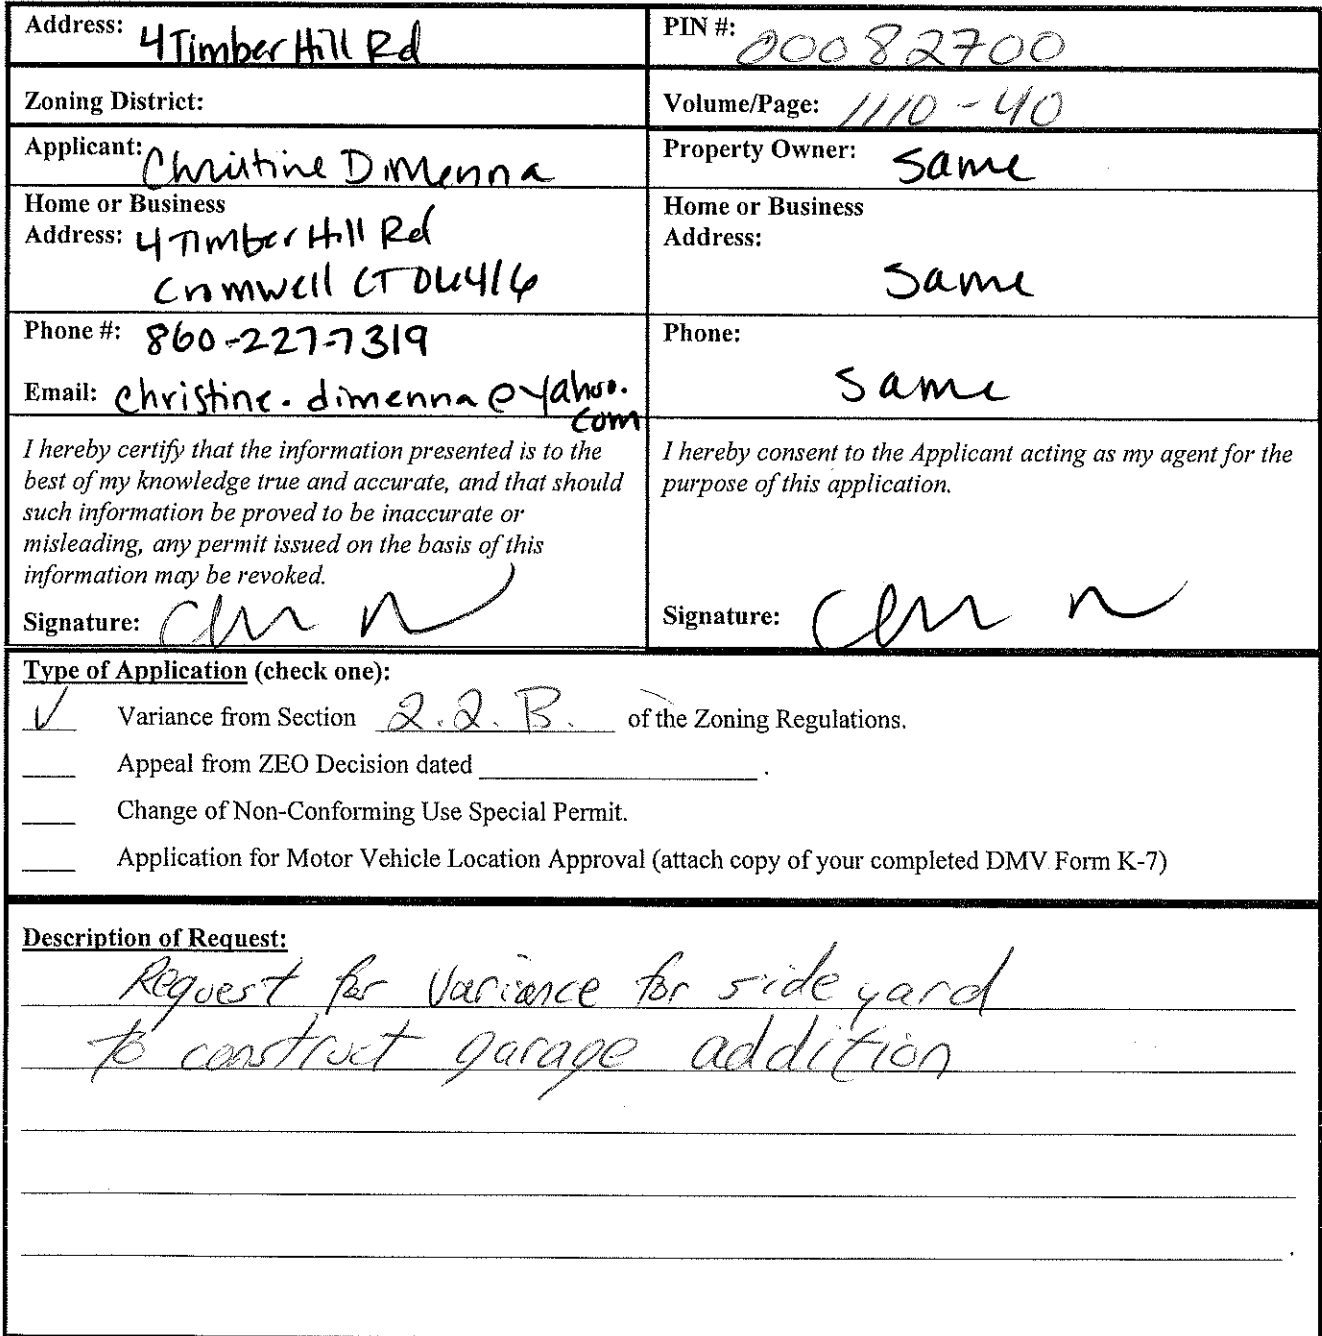 Address: 4 Timber Hill Rd
PIN #: 00082700
Zoning District:
Volume/Page: 1110-40
Applicant: Christine DiMenna
Property Owner: Same
Home or Business
Address: 4 Timber Hill Rd
Cromwell CT 06416
Home or Business
Address:
Same
Phone #: 860-227-7319
Email: christine.dimenna@yahoo.
com
Phone:
Same
I hereby certify that the information presented is to the
best of my knowledge true and accurate, and that should
such information be proved to be inaccurate or
misleading, any permit issued on the basis of this
information may be revoked.
Signature:
I hereby consent to the Applicant acting as my agent for the
purpose of this application.
Signature:
Type of Application (check one):
✓ Variance from Section 2.2.B. of the Zoning Regulations.
____ Appeal from ZEO Decision dated ____________________ .
____ Change of Non-Conforming Use Special Permit.
____ Application for Motor Vehicle Location Approval (attach copy of your completed DMV Form K-7)
Description of Request:
Request for Variance for side yard
to construct garage addition